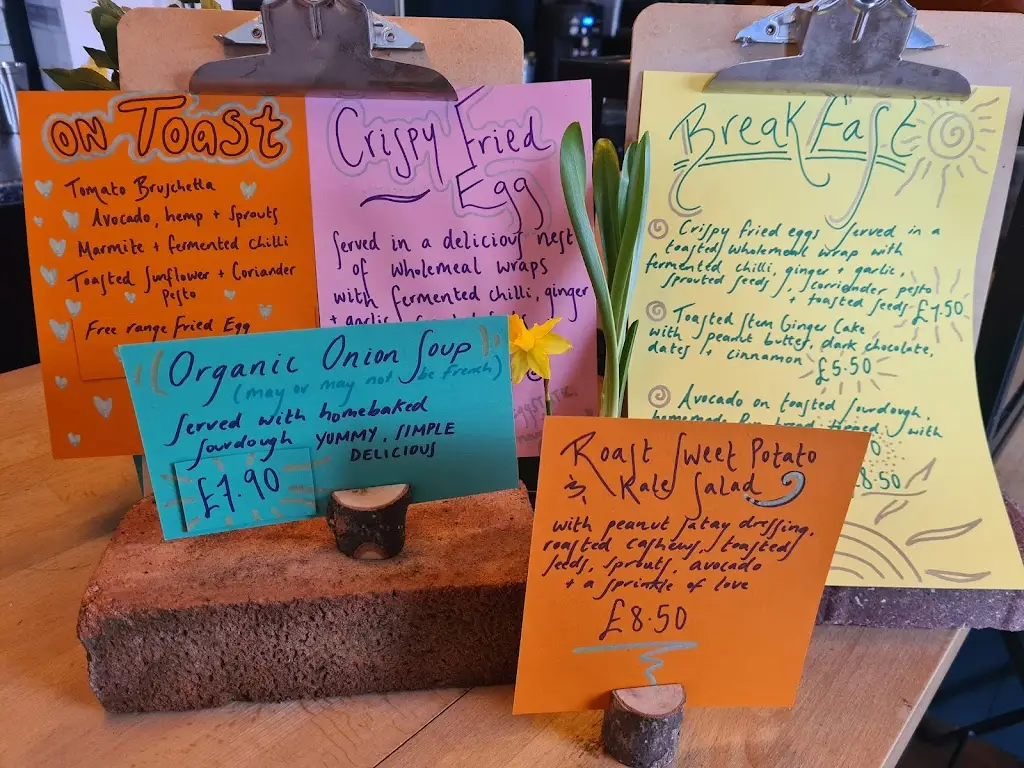 ON TOAST
Tomato Bruschetta
Avocado, hemp + sprouts
Marmite + fermented chilli
Toasted Sunflower + Coriander
Pesto
Free range Fried Egg
Crispy Fried
Egg
Served in a delicious nest
of wholemeal wraps
with fermented chilli, ginger
+ garlic
Organic Onion Soup
(may or may not be French)
Served with homebaked
Sourdough YUMMY, SIMPLE
DELICIOUS
£7.90
BreakFast
Crispy fried eggs served in a
toasted wholemeal wrap with
fermented chilli, ginger + garlic,
sprouted seeds, corriander pesto
+ toasted seeds £7.50
Toasted Stem Ginger Cake
with peanut butter, dark chocolate,
dates + cinnamon
£5.50
Avocado on toasted sourdough,
homemade bread topped with
8.50
Roast Sweet Potato
& Kale Salad
with peanut satay dressing,
roasted cashews, toasted
seeds, sprouts, avocado
+ a sprinkle of love
£8.50